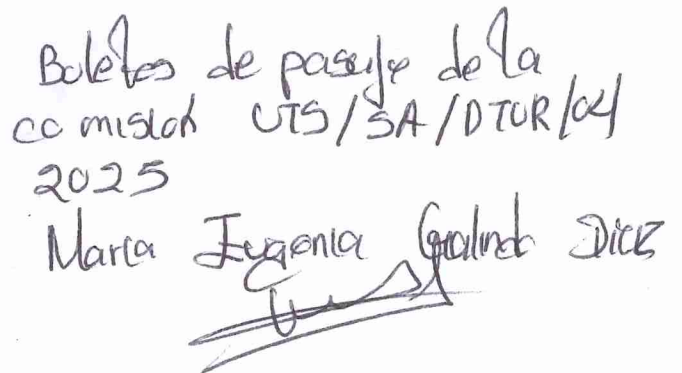 Boletos de pasaje de la
comisión UTS/SA/DTUR/04/
2025
María Eugenia Galindo Díaz